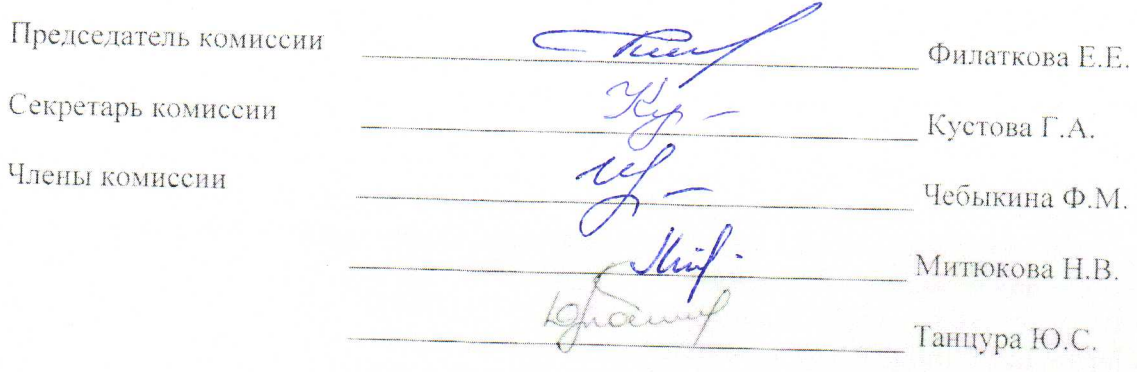 Председатель комиссии Филаткова Е.Е.
Секретарь комиссии Кустова Г.А.
Члены комиссии Чебыкина Ф.М.
Митюкова Н.В.
Танцура Ю.С.